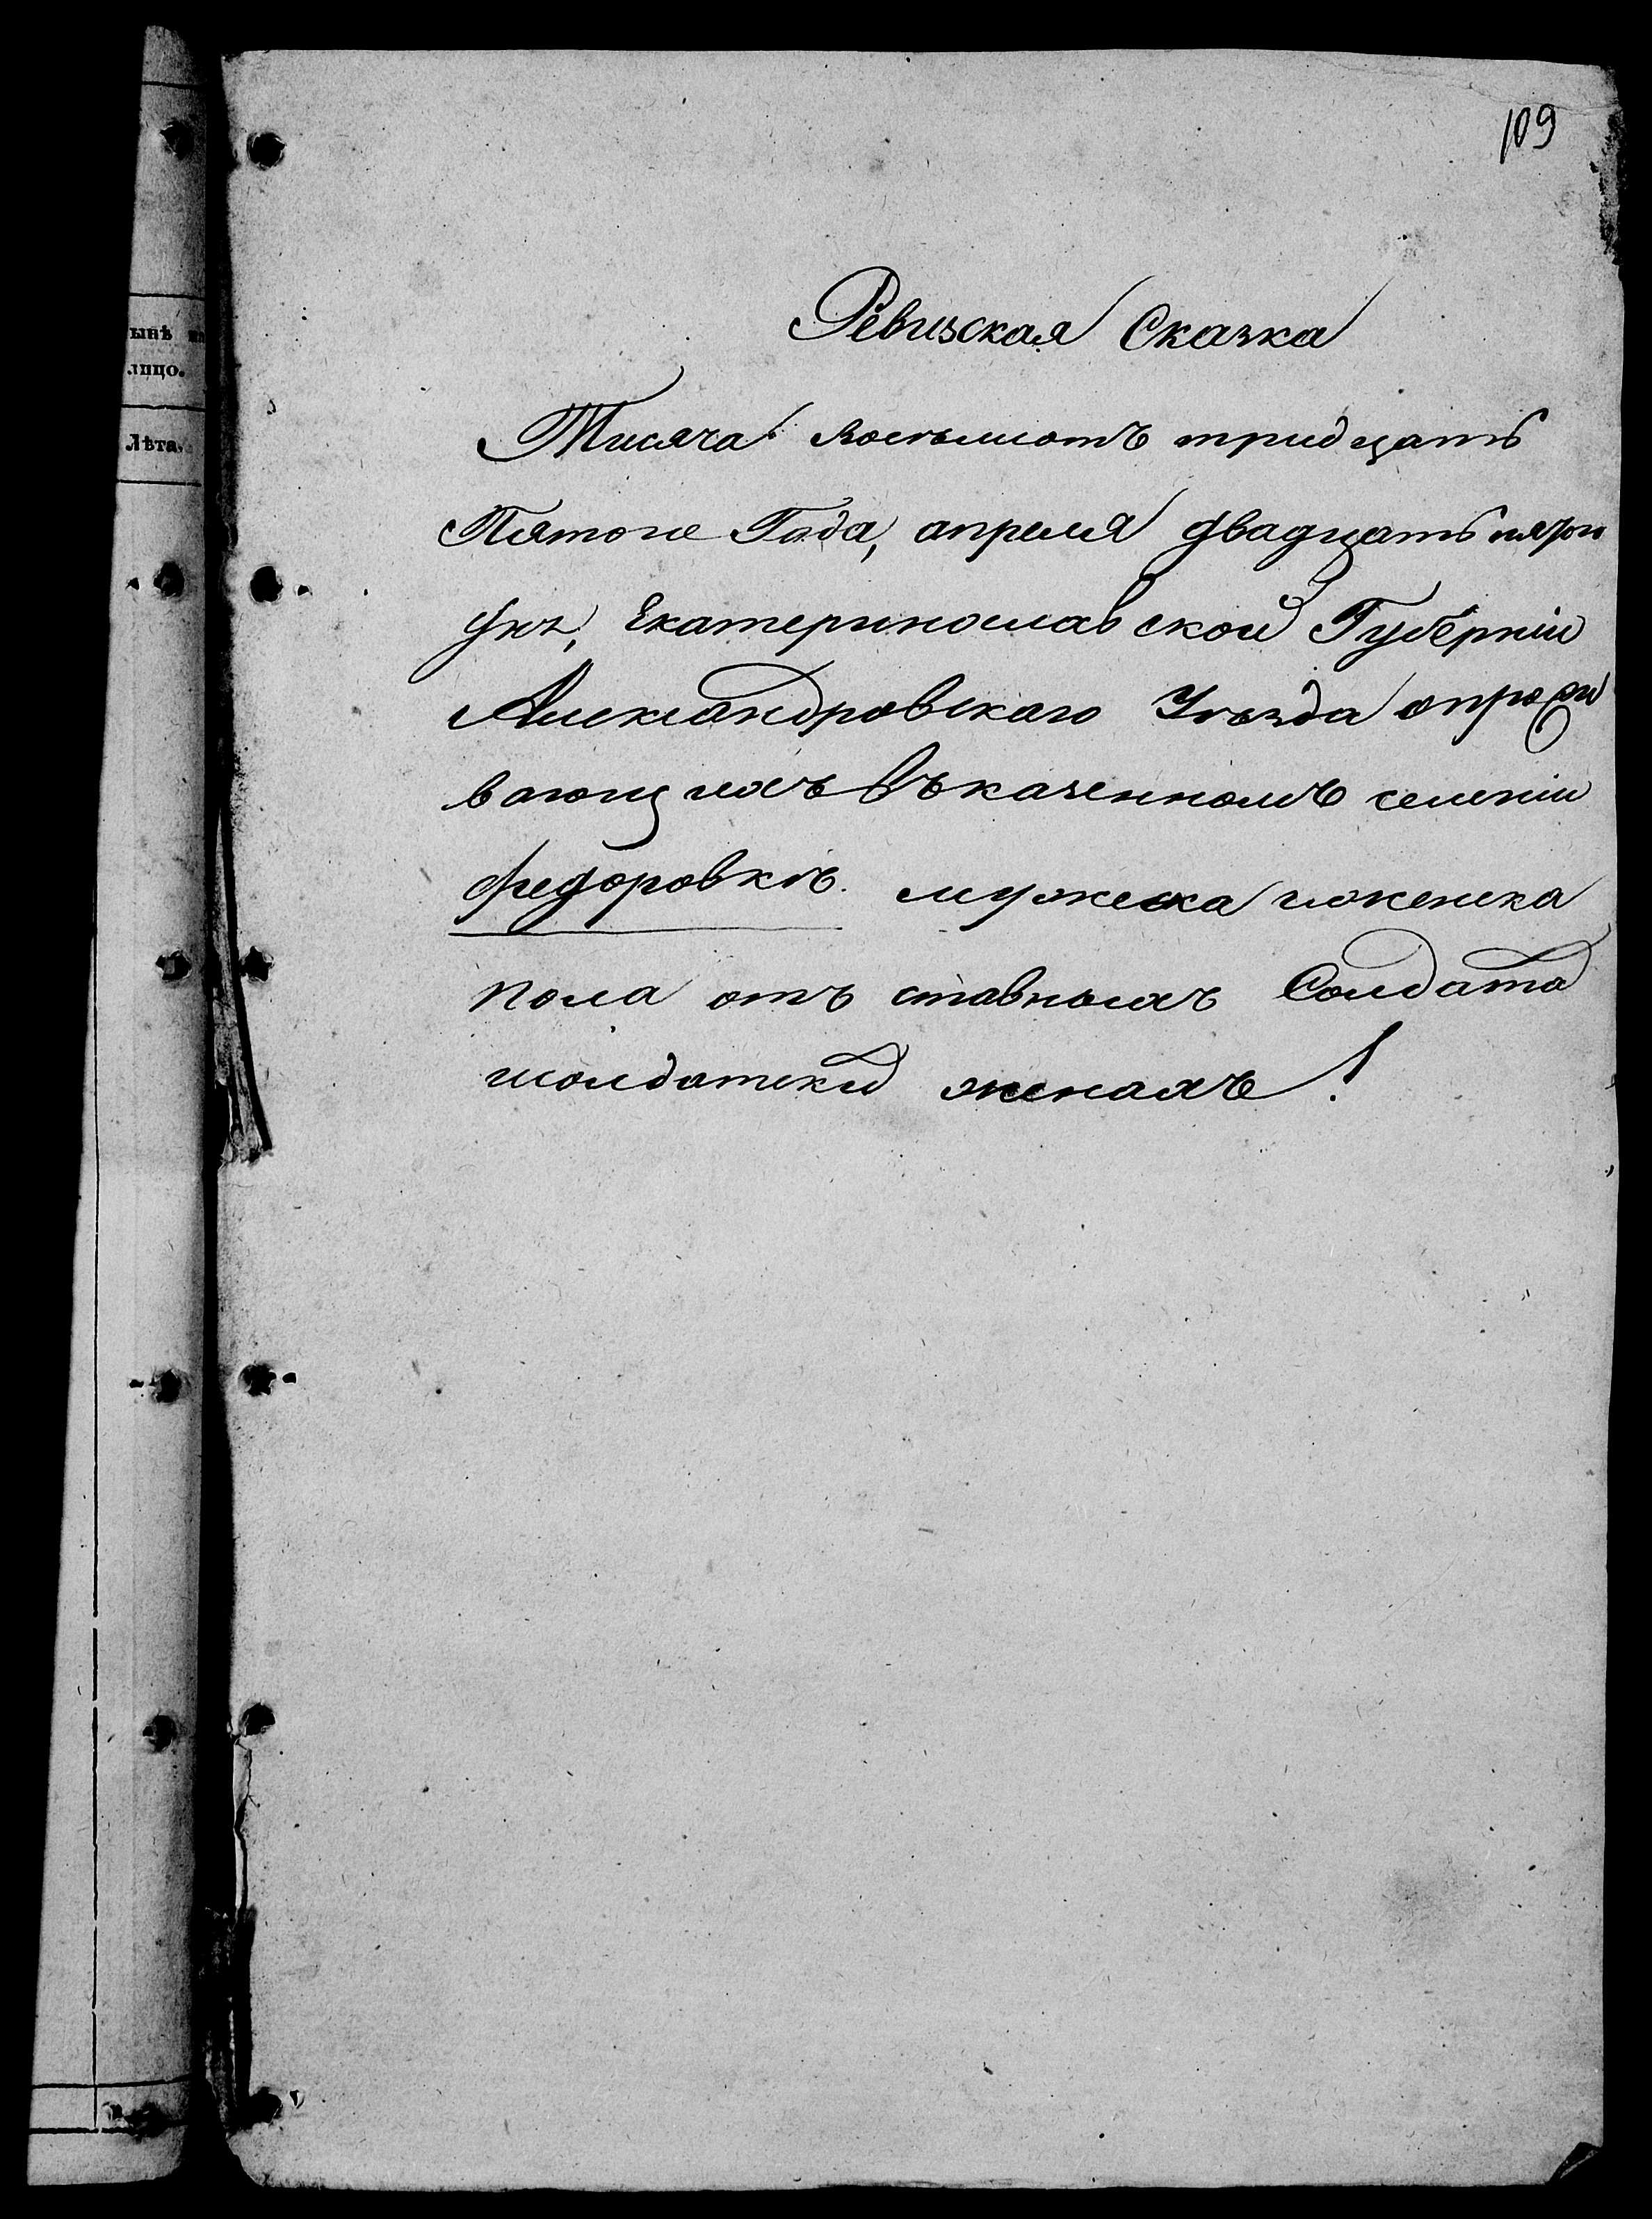 109
ынѣ на
лицо.
Лѣта.
Ревизская Сказка
Тисяча восьмиотъ тридцать
Пятоге Года, апреля двадцать пято
дня, Екатеринославской Губерніи
Александровскаго Уезда опрожи
вающихъ въ казенномъ селеніи
Федоровкѣ. мужеска иженска
пола отъ ставныхъ Солдата
исолдатски женахъ!